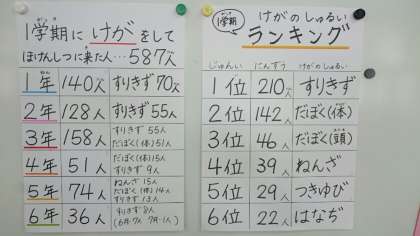 1学期に、けがをして
ほけんしつに来た人…587人
1年 140人 すりきず70人
2年 128人 すりきず55人
3年 158人 すりきず 55人
だぼく(体)51人
4年 51人 だぼく(体)15人
すりきず 9人
5年 74人 ねんざ 15人
だぼく(体)14人
すりきず 13人
6年 36人 すりきず 8人
1学期 けがのしゅるい
ランキング
じゅんい にんずう けがのしゅるい
1位 210人 すりきず
2位 142人 だぼく(体)
3位 46人 だぼく(頭)
4位 39人 ねんざ
5位 29人 つきゆび
6位 22人 はなぢ